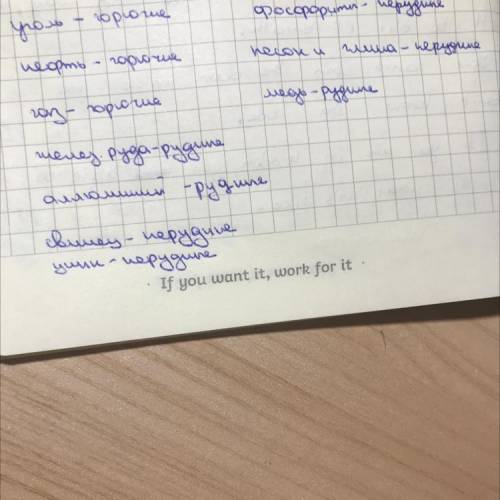 уголь - горючие
нефть - горючие
газ - горючие
желез. руда - рудные
аллюминий - рудные
свинец - нерудные
цинк - нерудные
фосфориты - нерудные
песок и глина - нерудные
медь - рудные
If you want it, work for it